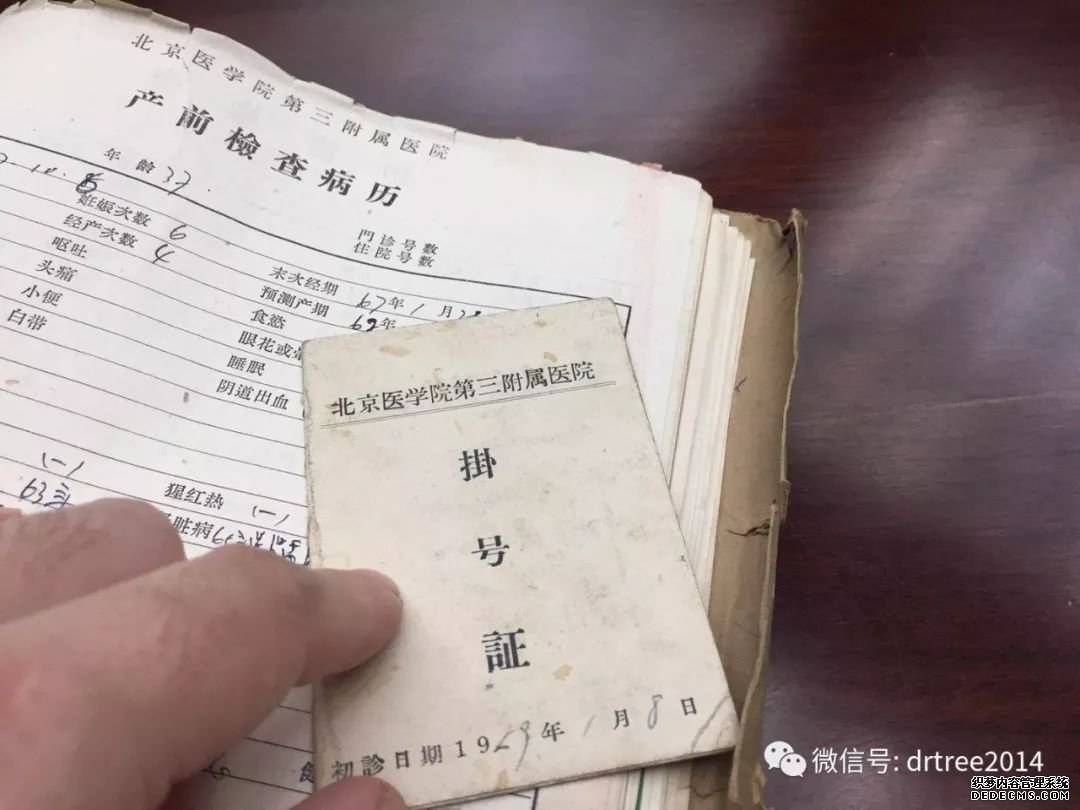 北京医学院第三附属医院
产前檢查病历
年龄 37
妊娠次数 6
門诊号数
经产次数 4
住院号数
呕吐
末次经期 67年1月
头痛
预测产期
小便
食慾
白带
眼花或
睡眠
阴道出血
(一)
猩红热 (一)
脏病
北京医学院第三附属医院
掛
号
証
初診日期19 9年1月8日
微信号: drtree2014
织梦内容管理系统
DEDECMS.COM